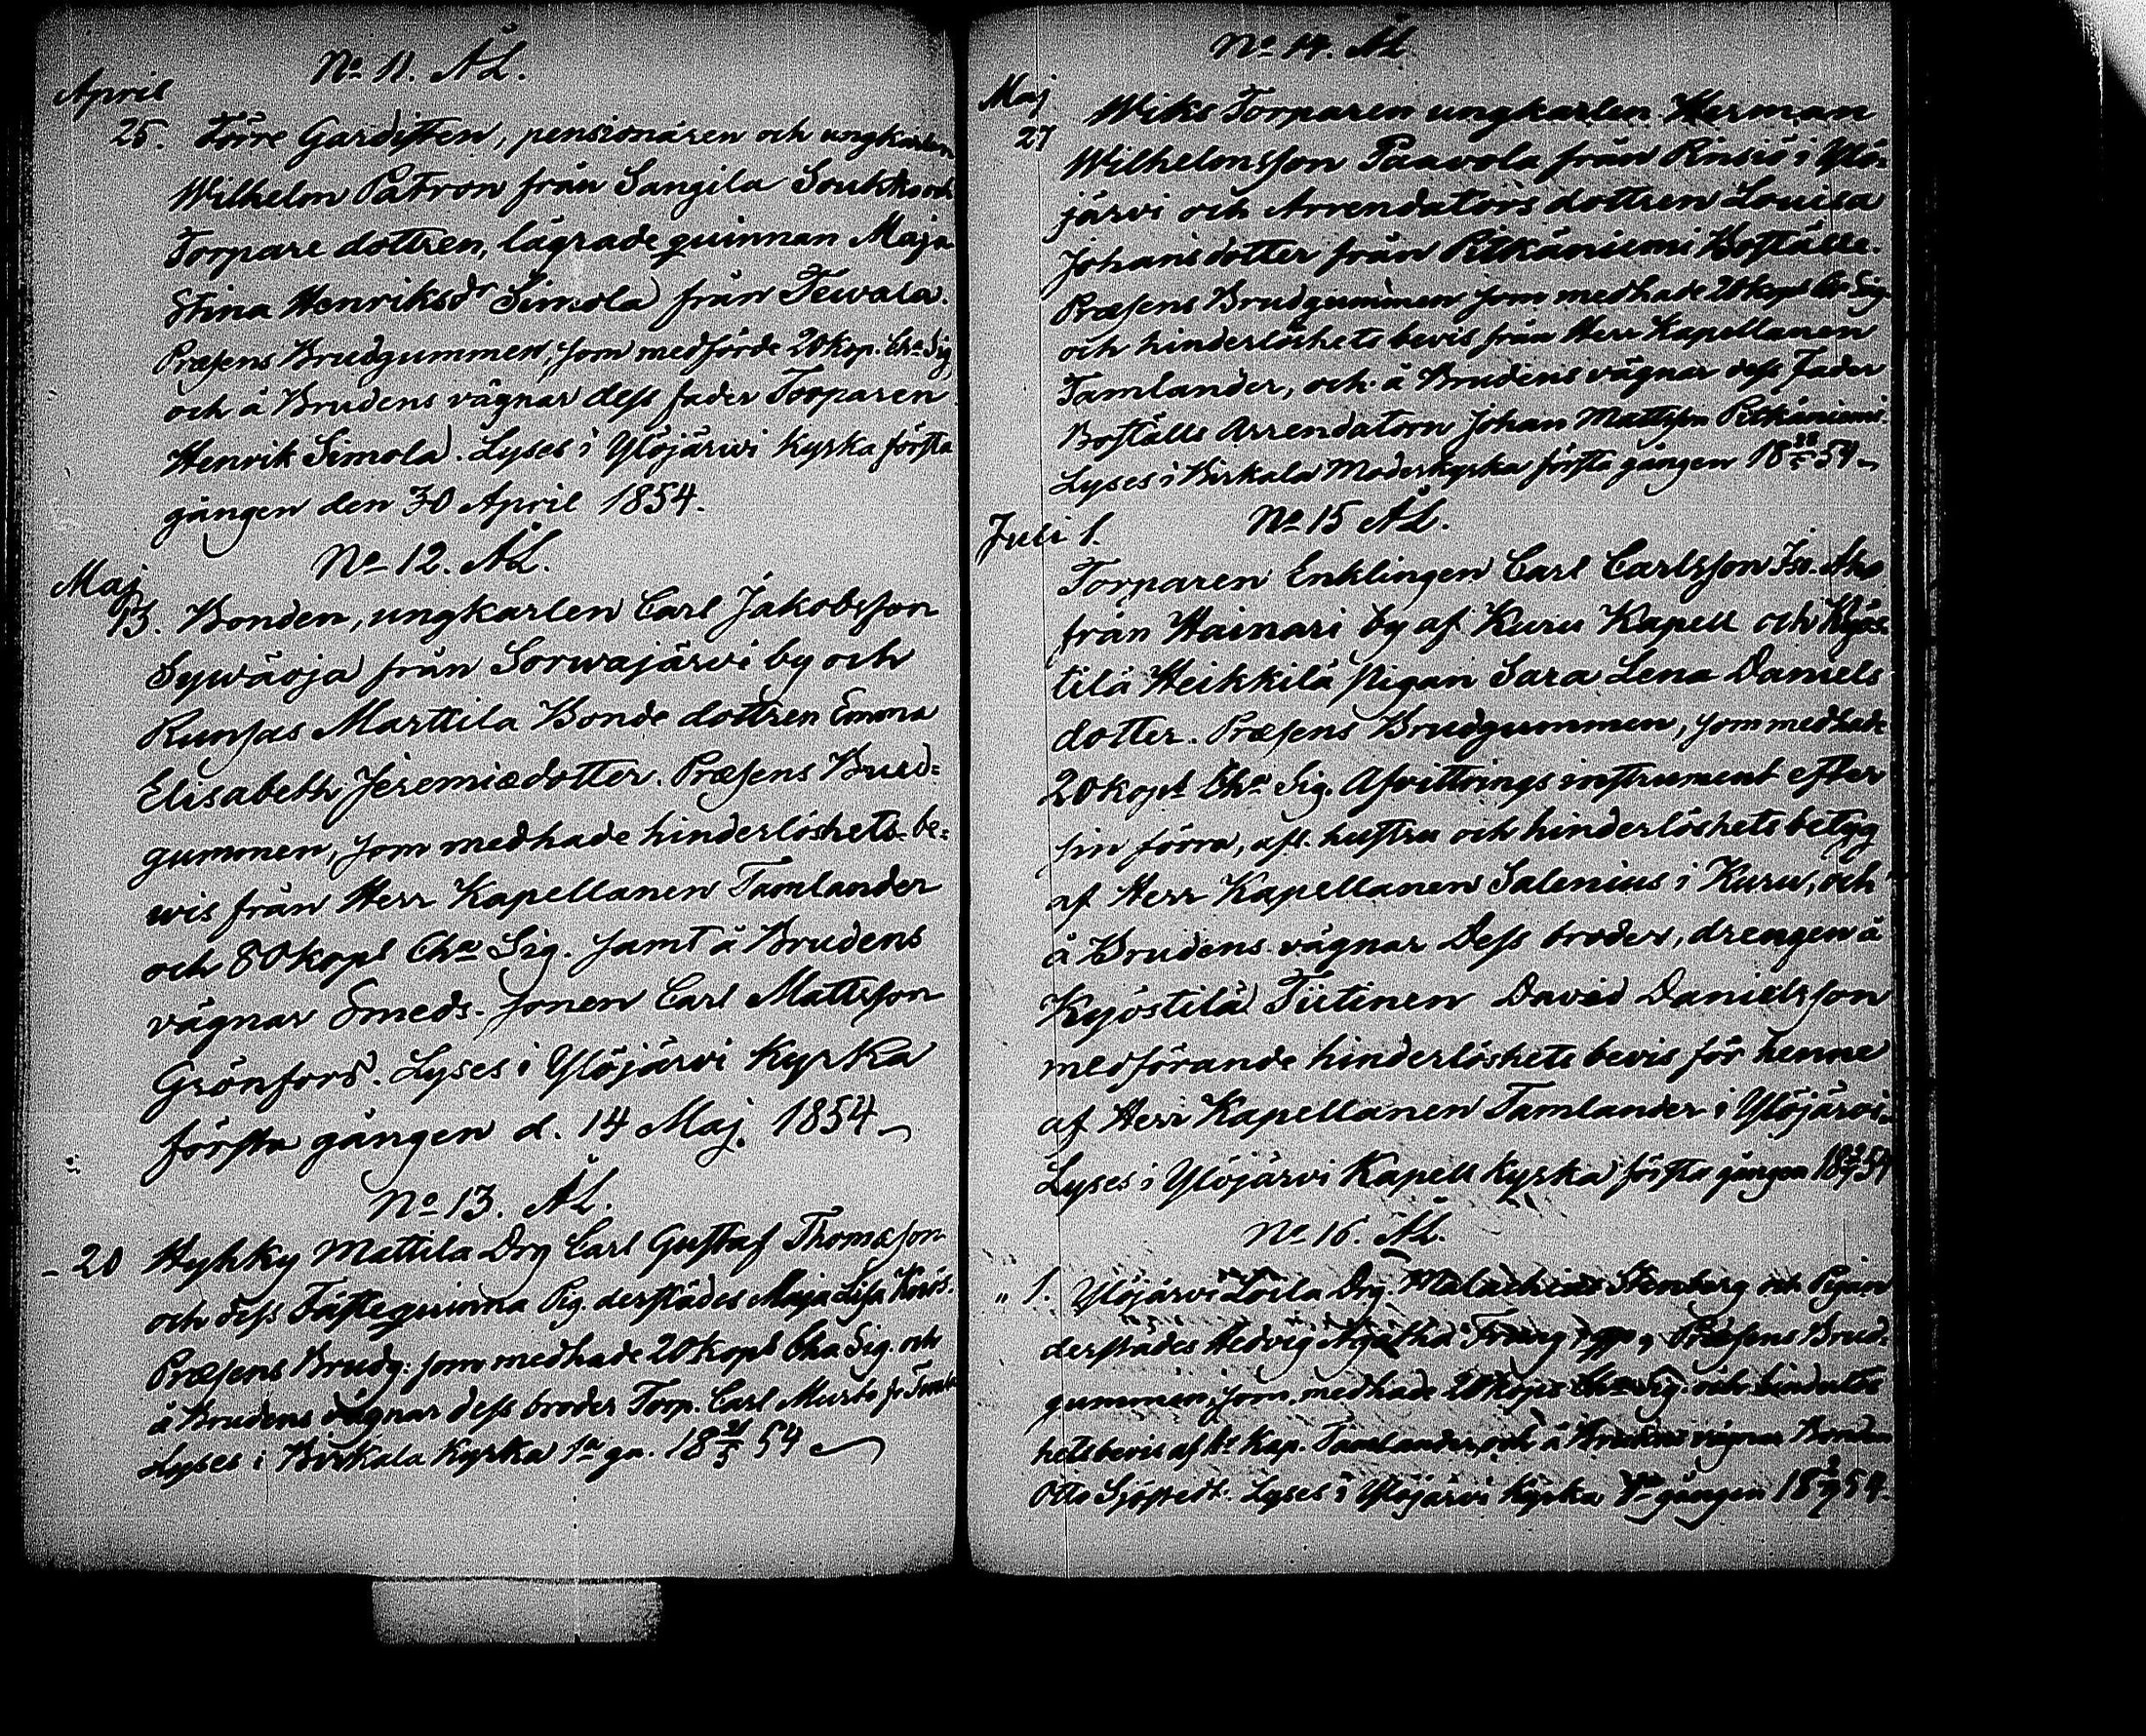 No 11. ÅL.
April
25. Förre Gardisten, pensionären och ungkarlen
Wilhelm Patron från Sangila Soukko och
Torpare dottren, lägrade quinnan Maja
Stina Henriksdr Simola från Tewala.
Præsens Brudgummen, som medförde 20 kop. Cha Sig
och å Brudens vägnar dess fader Torparen
Henrik Simola. Lyses i Ylöjärwi Kyrka första
gången den 30 April 1854.
No 12. ÅL.
Maj
13. Bonden, ungkarlen Carl Jakobsson
Sywäoja från Sorwajärvi by och
Runsas Marttila Bonde dottren Emma
Elisabeth Jeremiædotter. Præsens Brud=
gummen, som medhade hinderlöshets be=
wis från Herr Kapellanen Tamlander
och 80 kops Cha Sig. samt å Brudens
vägnar Smeds-sonen Carl Mattsson
Grönfors. Lyses i Ylöjärvi Kyrka
första gången d. 14 Maj. 1854
No 13. ÅL.
- 20 Hyhky Mattila Drg Carl Gustaf Thomæson
och dess Fästequinna Pig. derstädes Maja Lisa
Præsens Brudg: som medhade 20 kops Cha Sig. och
å Brudens vägnar dess broder Torp. Carl Murto fr
Lyses i Birkala Kyrka 1a gn. 18 21/5 54
No 14. ÅL
Maj
27 Wiks Torparen ungkarlen Herman
Wilhelmsson Paavola från Pinsiö i Ylö-
järvi och Arrendators dottren Lovisa
Johansdotter från Pitkäniemi Boställe.
Præsens Brudgummen som medhade 20 kops Cha Sig.
och hinderlöshets bevis från Herr Kapellanen
Tamlander, och å Brudens vägnar dess Fader
Boställs Arrendatorn Johan Mattsson Pitkäniemi.
Lyses i Birkala Moderkyrka första gången 18 28/5 54
No 15 ÅL.
Juli 1.
Torparen Enklingen Carl Carlsson Iso Aho
från Hainari by af Kuru Kapell och Kyös-
tilä Heikkilä Pigan Sara Lena Daniels
dotter. Præsens Brudgummen, som medhade
20 kops Cha Sig. Afvittrings instrument efter
sin förra, afl. hustru och hinderlöshets betyg
af Herr Kapellanen Salenius i Kuru, och
å Brudens vägnar Dess broder, drengen å
Kyöstilä Tiitinen David Danielsson
medförande hinderlöshets bevis för henne
af Herr Kapellanen Tamlander i Ylöjärvi.
Lyses i Ylöjärvi Kapell kyrka första gången 18 2/7 54
No 16. ÅL.
" 1. Ylöjärvi Loila Drg. Malachias Stenberg och Pigan
derstädes Hedvig Agatha Præsens Brud-
gummen, som medhade 20 kops Cha Sig. och hinderlös
hetsbevis af Hr Kap. Tamlander, och å Brudens vägnar Bonden
Otto Sjöstedt. Lyses i Ylöjärvi Kyrka 1a gången 18 2/7 54.